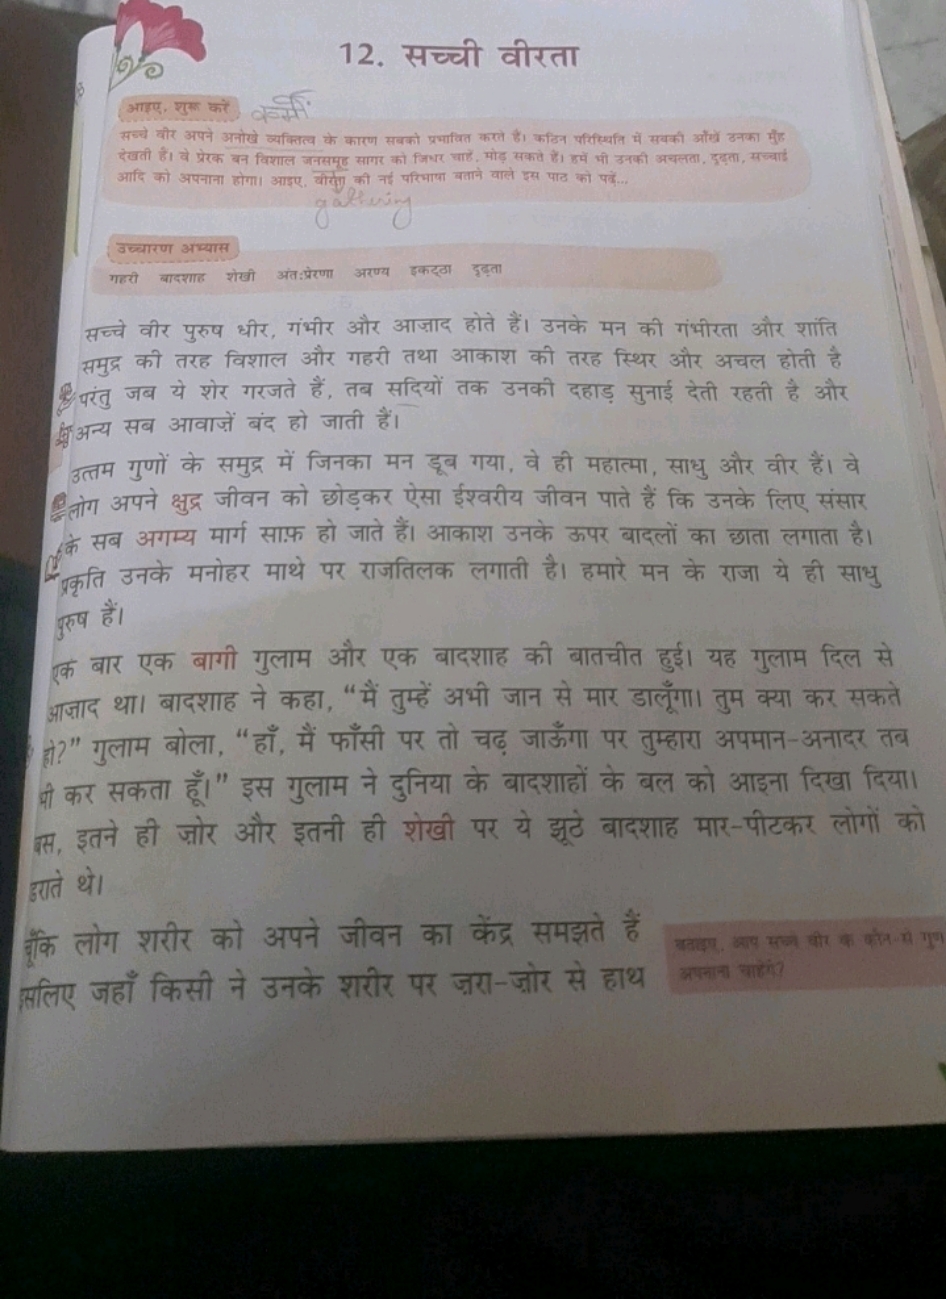 12. सच्ची वीरता
आइए, शुरू करें
सच्चे वीर अपने अनोखे व्यक्तित्व के कारण सबको प्रभावित करते हैं। कठिन परिस्थिति में सबकी आँखें उनका मुँह
देखती हैं। वे प्रेरक बन विशाल जनसमूह सागर को जिधर चाहें, मोड़ सकते हैं। हमें भी उनकी अचलता, दृढ़ता, सच्चाई
आदि को अपनाना होगा। आइए, वीरता की नई परिभाषा बताने वाले इस पाठ को पढ़ें...
gathering
उच्चारण अभ्यास
गहरी बादशाह शेखी अंतःप्रेरणा अरण्य इकट्ठा दृढ़ता
सच्चे वीर पुरुष धीर, गंभीर और आज़ाद होते हैं। उनके मन की गंभीरता और शांति
समुद्र की तरह विशाल और गहरी तथा आकाश की तरह स्थिर और अचल होती है
परंतु जब ये शेर गरजते हैं, तब सदियों तक उनकी दहाड़ सुनाई देती रहती है और
अन्य सब आवाज़ें बंद हो जाती हैं।
उत्तम गुणों के समुद्र में जिनका मन डूब गया, वे ही महात्मा, साधु और वीर हैं। वे
लोग अपने क्षुद्र जीवन को छोड़कर ऐसा ईश्वरीय जीवन पाते हैं कि उनके लिए संसार
के सब अगम्य मार्ग साफ़ हो जाते हैं। आकाश उनके ऊपर बादलों का छाता लगाता है।
प्रकृति उनके मनोहर माथे पर राजतिलक लगाती है। हमारे मन के राजा ये ही साधु
पुरुष हैं।
एक बार एक बागी गुलाम और एक बादशाह की बातचीत हुई। यह गुलाम दिल से
आज़ाद था। बादशाह ने कहा, “मैं तुम्हें अभी जान से मार डालूँगा। तुम क्या कर सकते
हो?” गुलाम बोला, “हाँ, मैं फाँसी पर तो चढ़ जाऊँगा पर तुम्हारा अपमान-अनादर तब
भी कर सकता हूँ।” इस गुलाम ने दुनिया के बादशाहों के बल को आइना दिखा दिया।
बस, इतने ही ज़ोर और इतनी ही शेखी पर ये झूठे बादशाह मार-पीटकर लोगों को
डराते थे।
चूँकि लोग शरीर को अपने जीवन का केंद्र समझते हैं
इसलिए जहाँ किसी ने उनके शरीर पर ज़रा-ज़ोर से हाथ
बताइए, आप सच्चे वीर के कौन-से गुण
अपनाना चाहेंगे?